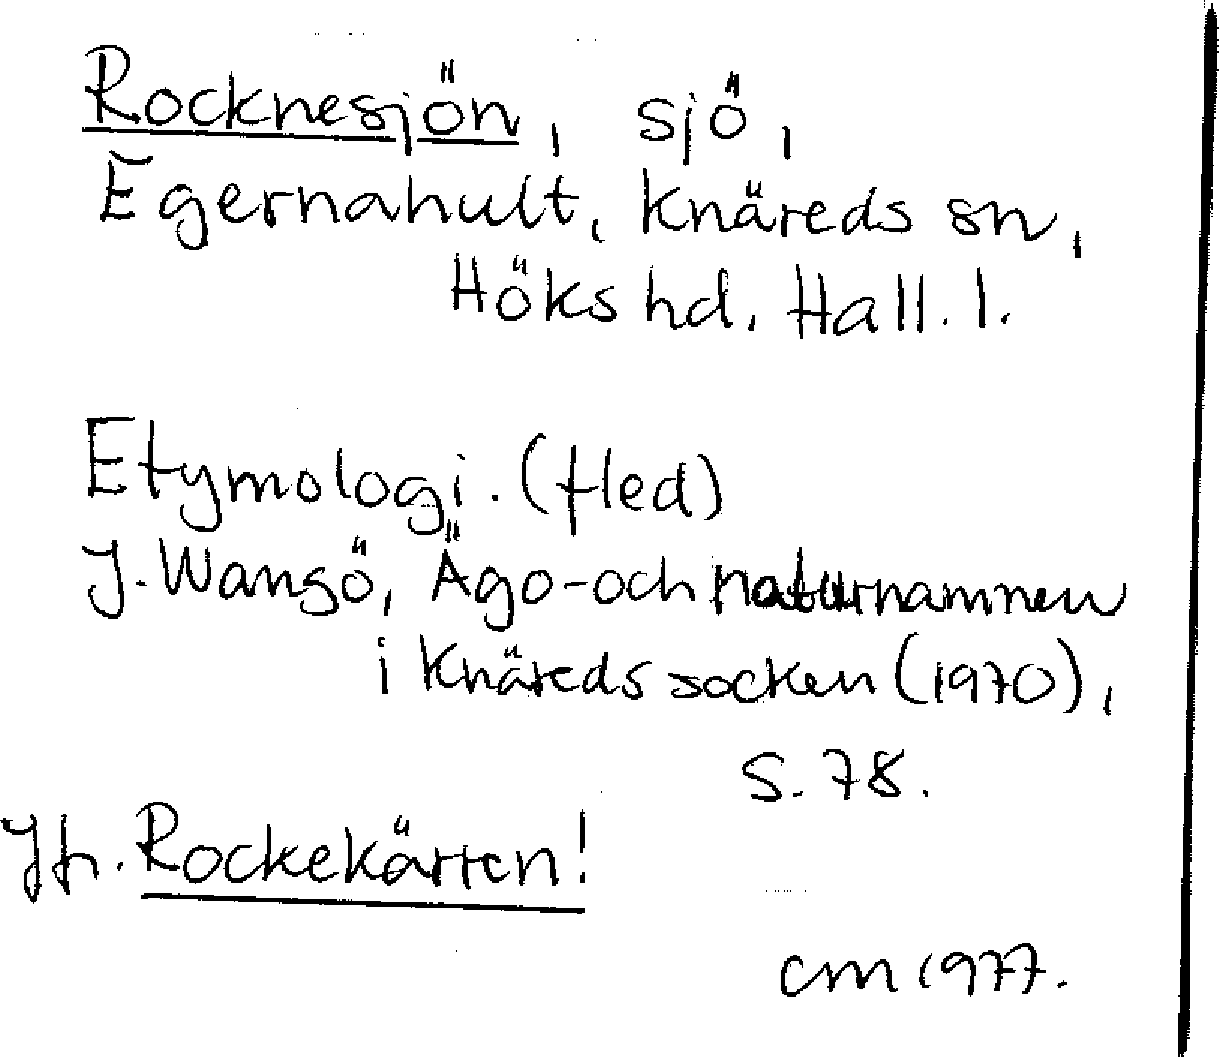 Rocknesjön, sjö,
Egernahult, Knäreds sn,
Höks hd, Hall. l.
Etymologi. (fled)
J. Wangö, Ägo- och naturnamnen
i Knäreds socken (1970),
S. 78.
Jfr. Rockekärren!
CM 1977.